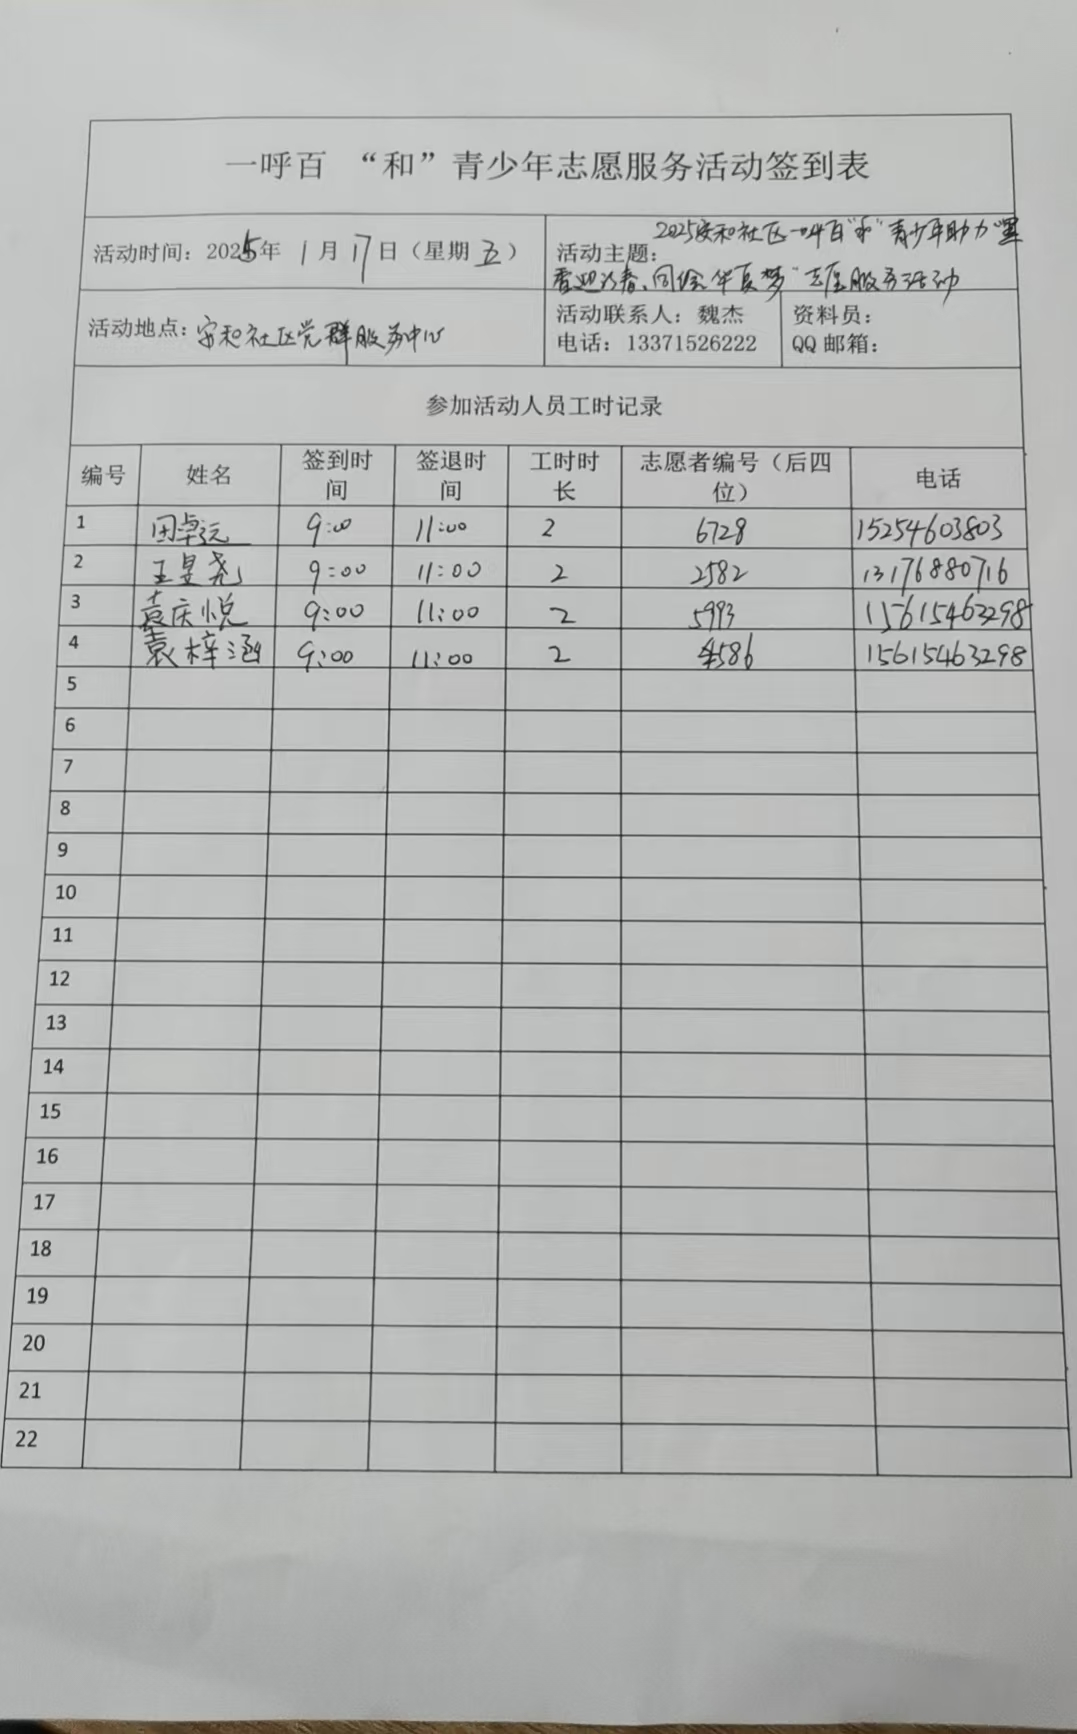 一呼百 “和”青少年志愿服务活动签到表
活动时间：2025年 1月17日（星期五）
活动主题：2025安和社区一呼百“和”青少年助力“墨
香迎新春、同绘华夏梦”志愿服务活动
活动地点：安和社区党群服务中心
活动联系人：魏杰
电话：13371526222
资料员：
QQ邮箱：
参加活动人员工时记录
编号 姓名 签到时间 签退时间 工时时长 志愿者编号（后四位） 电话
1 田卓远 9:00 11:00 2 6728 15254603803
2 王昱尧 9:00 11:00 2 2582 13176880716
3 袁庆悦 9:00 11:00 2 5993 15615463298
4 袁梓涵 9:00 11:00 2 4586 15615463298
5
6
7
8
9
10
11
12
13
14
15
16
17
18
19
20
21
22